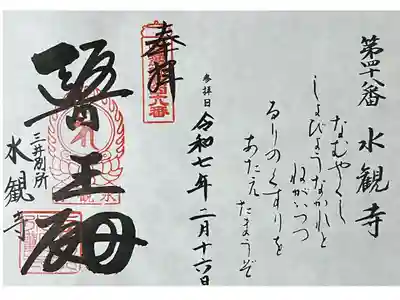 第四十八番 水観寺
なむやくし
しょびょうなかれと
ねがいつつ
るりのくすりを
あたえ
たまうぞ
参拝日 令和七年二月十六日
奉拝
醫王殿
三井別所
水観寺